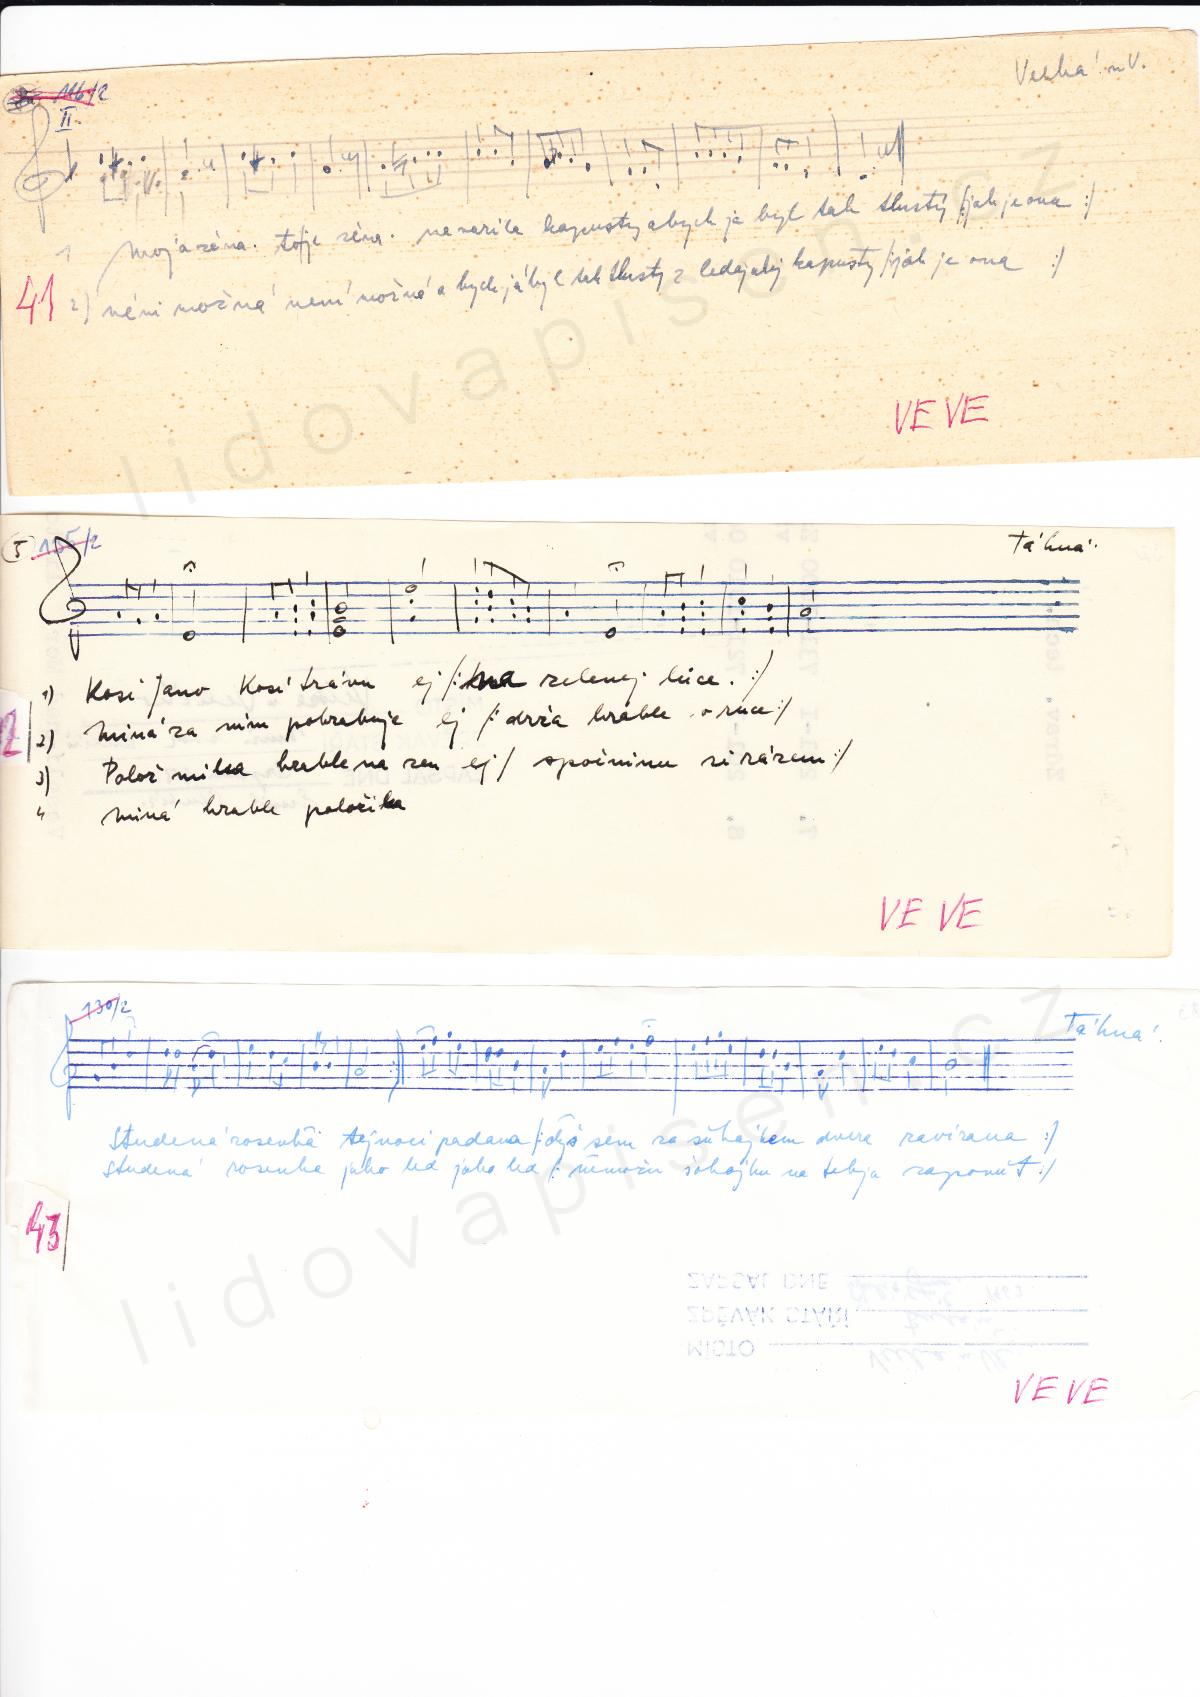 116/2
Velká n V.
II.
1 moja žena. to je žena. navařila kapusty abych ja byl tak tlustý /: jak je ona :/
41
2) néni možná není možná abych já byl tak tlustý z ledajakej kapusty /: jak je ona :/
VE VE
5 105/2
Táhlá
1) Kosí Jano Kosí trávu ej /: na zelenej lúce. :/
2) miná za ním pohrabuje ej /: drža hrable v ruce :/
2
3) Polož milka hrable na zem ej / spočinimu si rázem :/
4 miná hrable položila
VE VE
130/2
Táhlá
Studená rosenka tejnoci padala /: dyž sem za súhajkem dvera zavírala :/
Studená rosenka jako led jako led /: nemožu šohajku na tebja zapomút :/
43
ZAPSAL DNE
ZPĚVÁK STÁŘÍ
MÍSTO Velká n. Vel.
VE VE
lidovapisen.cz
lidovapisen.cz